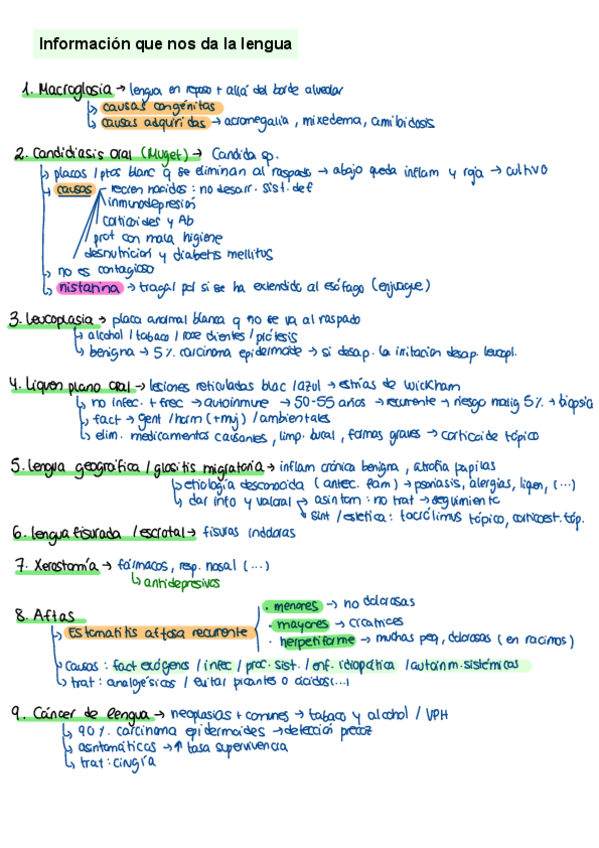 Información que nos da la lengua
1. Macroglosia → lengua en reposo + allá del borde alveolar
↳ causas congénitas
↳ causas adquiridas → acromegalia, mixedema, amiloidosis
2. Candidiasis oral (Muget) → Candida sp.
↳ placas / ptos blanc q se eliminan al raspado → abajo queda inflam y roja → cultivo
↳ causas - recien nacidos: no desarr. sist. def
inmunodepresión
corticoides y Ab
prot con mala higiene
desnutricion y diabetes mellitus
↳ no es contagioso
↳ nistatina → tragal pol si se ha extendido al esófago (enjuague)
3. Leucoplasia → placa anormal blanca q no se va al raspado
↳ alcohol / tabaco / roce dientes / prótesis
↳ benigna → 5% carcinoma epidermoide → si desap. la irritacion desap. leucopl.
4. Liquen plano oral → lesiones reticuladas blac / azul → estrías de Wickham
↳ no infec. + frec → autoinmune → 50-55 años → recurrente → riesgo malig 5% → biopsia
↳ fact → gent / horm (+muj) / ambientales
↳ elim. medicamentos causantes, limp. bucal, formas graves → corticoide tópico
5. Lengua geográfica / glositis migratoria → inflam crónica benigna, atrofia papilas
↳ etiología desconocida (antec. fam) → psoriasis, alergias, liqen, (...)
↳ dar info y valorar → asintom: no trat → seguimiento
sint / estetica: tacrólimus tópico, corticoest. tóp.
6. lengua fisurada / escrotal → fisuras indoloras
7. Xerostomía → fármacos, resp. nasal (...)
↳ antidepresivos
8. Aftas
↳ Estomatitis aftosa recurente
· menores → no dolorosas
· mayores → cicatrices
· herpetiforme → muchas peq, dolorosas (en racimos)
↳ causas: fact exógenos / infec / proc. sist. / enf. idiopática / autoinm. sistémicas
↳ trat: analgésicos / evitar picantes o ácidos (...)
9. Cáncer de lengua → neoplasias + comunes → tabaco y alcohol / VPH
↳ 90%. carcinoma epidermoides → detección precoz
↳ asintomáticos → ↑ tasa supervivencia
↳ trat: cirugía